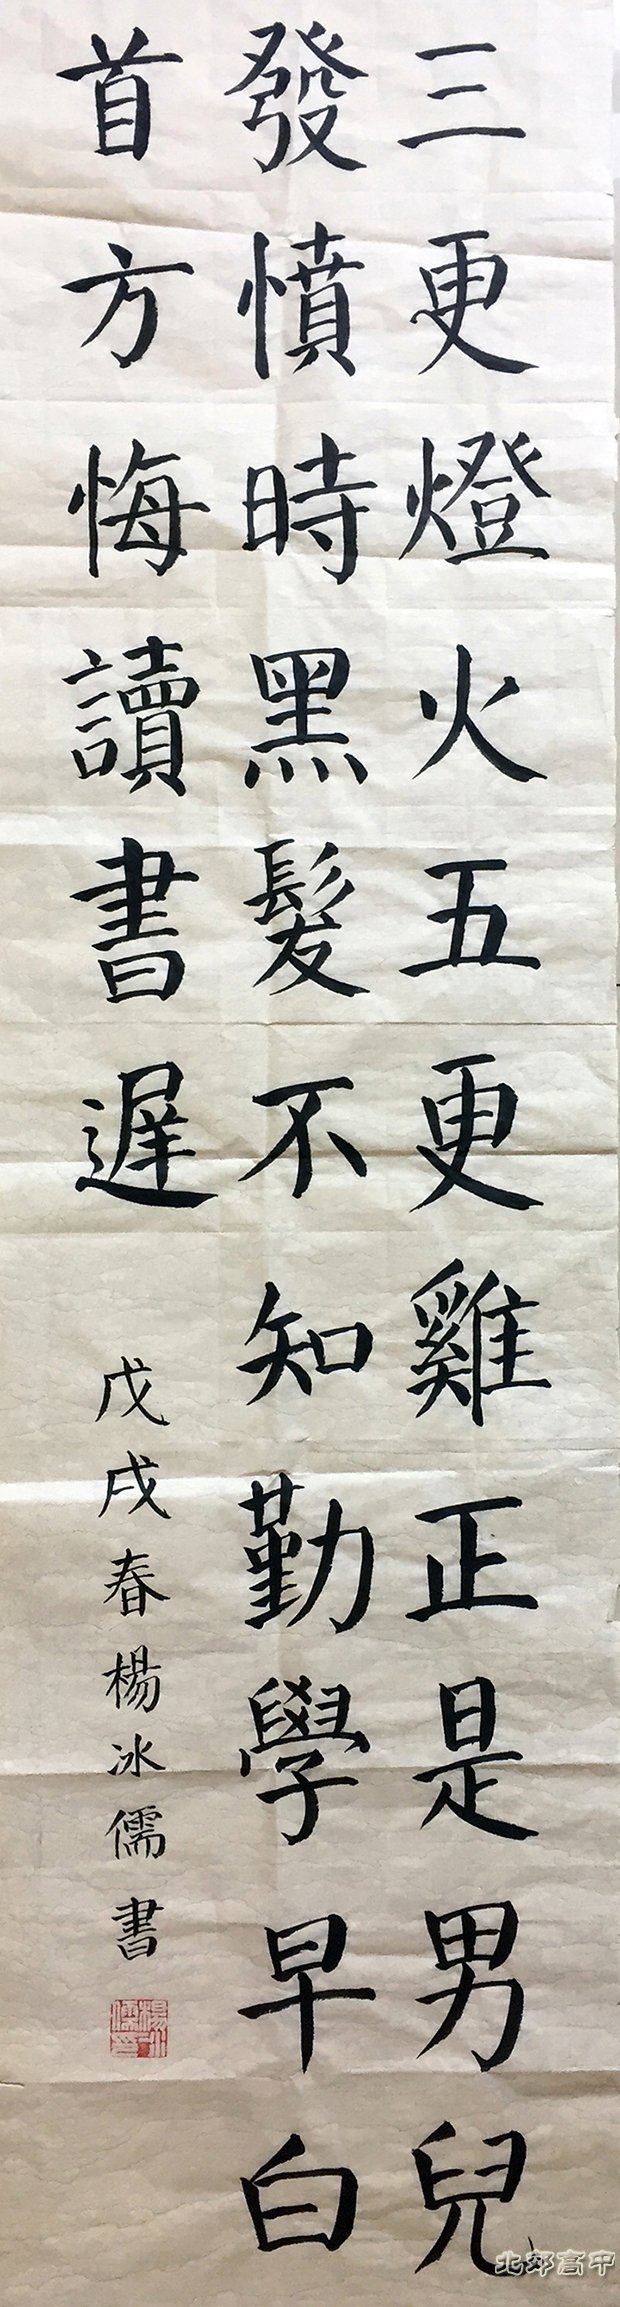 三更燈火五更雞正是男兒
發憤時黑髮不知勤學早白
首方悔讀書遲
戊戌春楊冰儒書
北郊高中